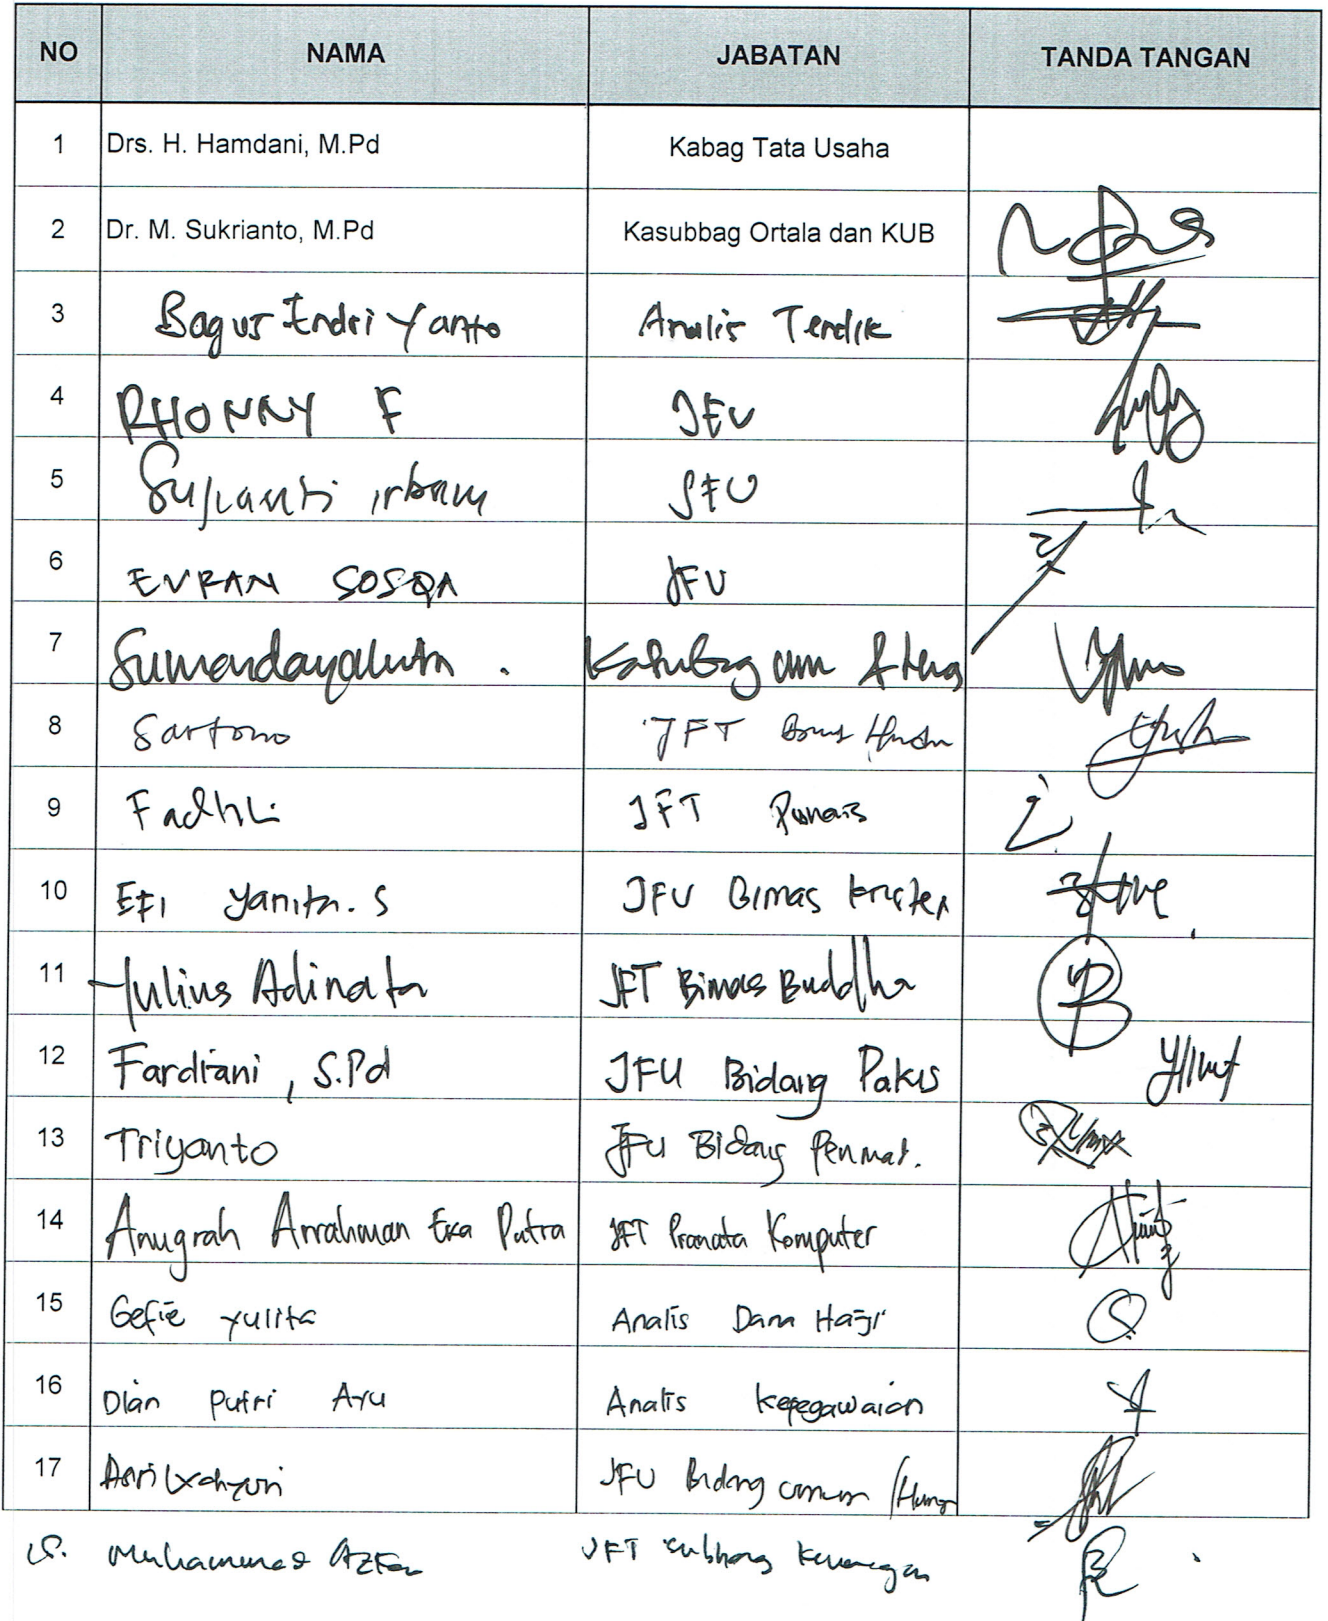 NO NAMA JABATAN TANDA TANGAN
1 Drs. H. Hamdani, M.Pd Kabag Tata Usaha
2 Dr. M. Sukrianto, M.Pd Kasubbag Ortala dan KUB
3 Bagus Endri Yanto Analis Tendik
4 RHONNY F JFU
5 JFU
6 EVRAN SOSQA JFU
7
8 Sartono JFT
9 Fadhli JFT
10 EFI Yanita. S JFU Bimas Kristen
11 Yulius Adinata JFT Bimas Buddha
12 Fardiani, S.Pd JFU Bidang Pakis
13 Triyanto JFU Bidang Penmad.
14 Anugrah Arrahman Eka Putra JFT Pranata Komputer
15 Gefie Yulita Analis Dana Haji
16 Dian Putri Ayu Analis Kepegawaian
17 JFU
Muhammad JFT